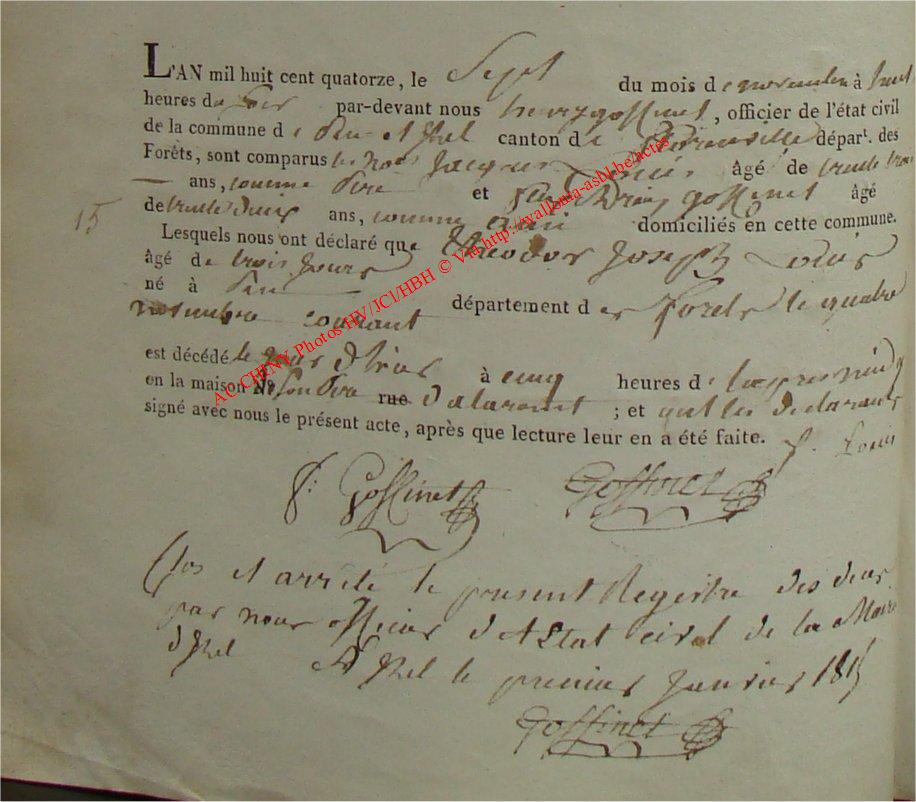 L'AN mil huit cent quatorze, le Sept du mois de novembre à huit
heures du Soir par-devant nous henry goffinet, officier de l'état civil
de la commune d canton de florenville départ. des
Forêts, sont comparus les nous Jacques Louis âgé de trente trois
— ans, comme Pere et goffinet âgé
15
de trente deuix ans, comme ami domiciliés en cette commune.
Lesquels nous ont déclaré que theodor Joseph Louis
âgé de trois Jours
né à département des Forets le quatre
novembre courant
est décédé le jour d'hier à cinq heures de lapres midy
en la maison No son Pere rue ; et ont les declarants
signé avec nous le présent acte, après que lecture leur en a été faite.
J. Louis
f: Goffinet Goffinet
Clos et arrêté le present Registre des deces
par nous officier d'Etat civil de la Mairie
d'Izel A Izel le premier Janvier 1815
Goffinet
AC CHINY Photos HV/JCl/HBH © Via http://wallonia-asbl.be/actes